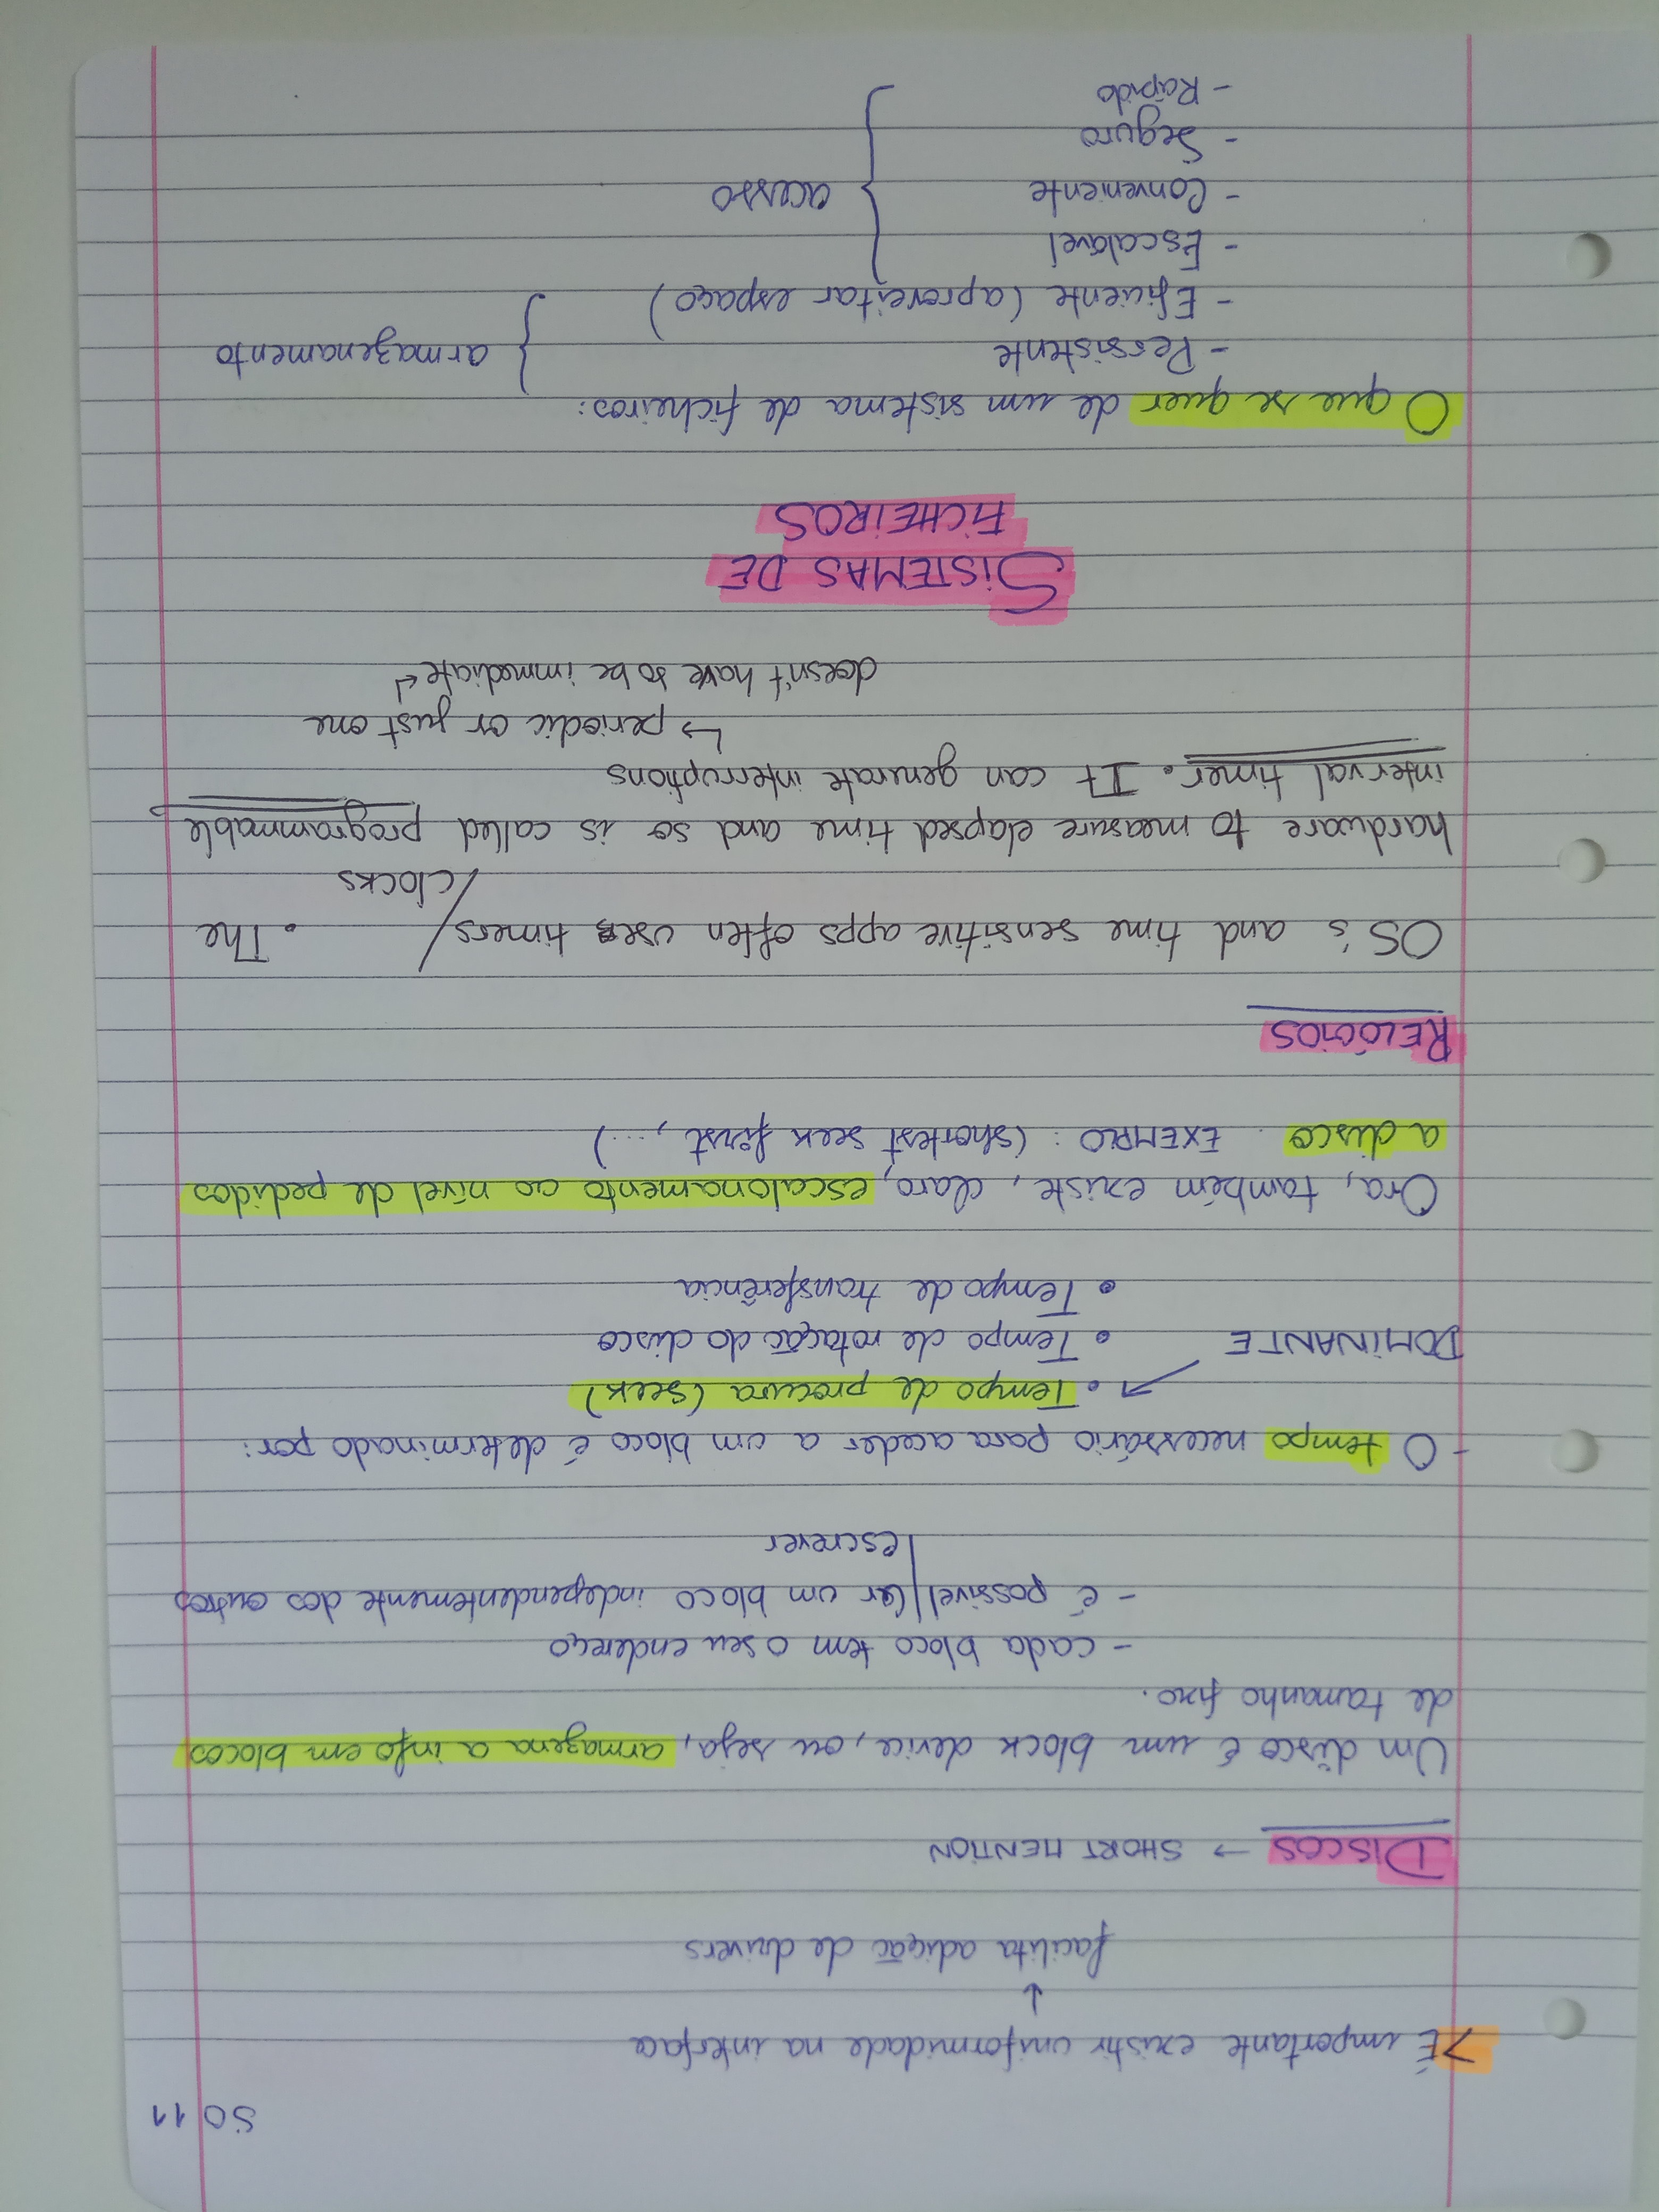 SO 11
>É importante existir uniformidade na interface
↓
facilita adição de drivers
DISCOS → SHORT MENTION
Um disco é um block device, ou seja, armazena a info em blocos
de tamanho fixo.
- cada bloco tem o seu endereço
- é possivel | ler um bloco independentemente dos outros
| escrever
- O tempo necessário para aceder a um bloco é determinado por:
• Tempo de procura (seek)
DOMINANTE ↗ • Tempo de rotação do disco
• Tempo de transferência
Ora, também existe, claro, escalonamento ao nível de pedidos
a disco. EXEMPLO: (shortest seek first, ...)
RELÓGIOS
OS's and time sensitive apps often use timers/ . The
/clocks
hardware to measure elapsed time and so is called programmable
interval timer. It can generate interruptions
↳ periodic or just one
doesn't have to be immediate ↲
SISTEMAS DE
FICHEIROS
O que se quer de um sistema de ficheiros:
- Persistente } armazenamento
- Eficiente (aproveitar espaço)
- Escalável
- Conveniente } acesso
- Seguro
- Rápido